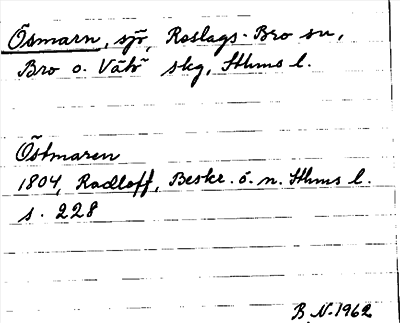 Ösmarn, sjö, Roslags-Bro sn,
Bro o. Vätö skg, Sthms l.
Östmaren
1804, Radloff, Beskr. ö. n. Sthms l.
s. 228
B N. 1962